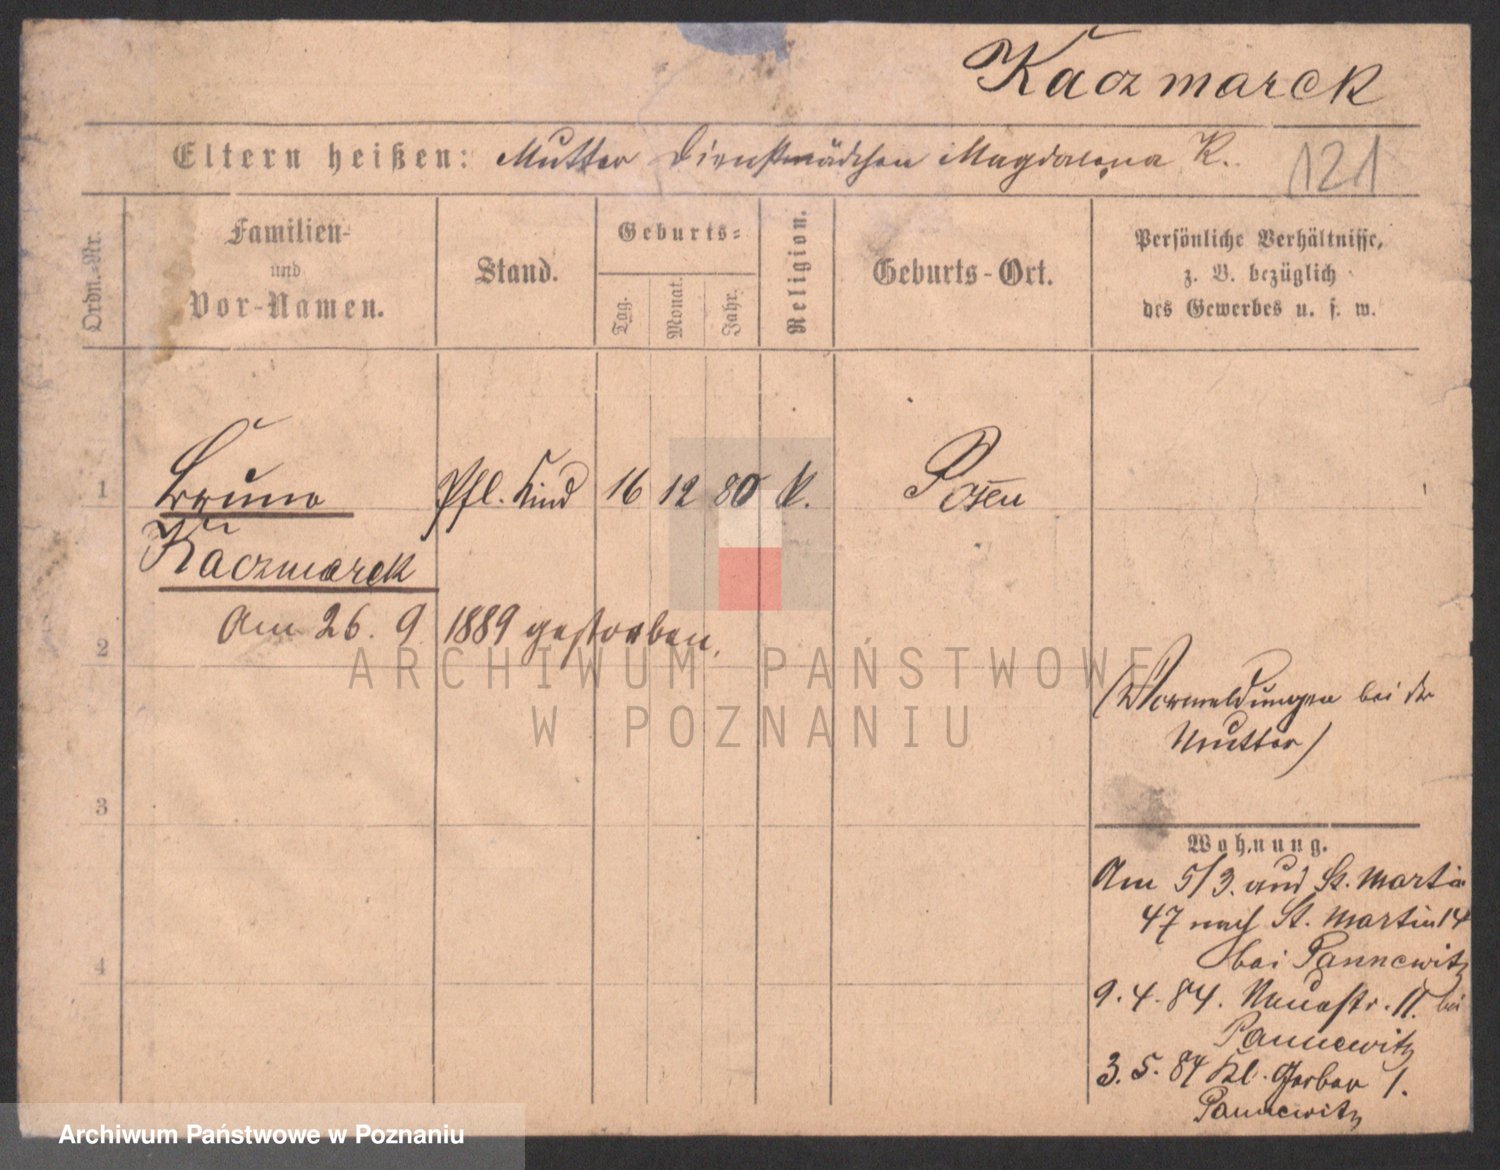 Kaczmarek
Eltern heißen: Mutter Dienstmädchen Magdalena K.
121
Ordn.-Nr.
Familien-
und
Vor-Namen.
Stand.
Geburts-
Tag.
Monat.
Jahr.
Religion.
Geburts-Ort.
Persönliche Verhältnisse,
z. B. bezüglich
des Gewerbes u. s. w.
1 Bruno Pfl. Kind 16 12 80 k. Posen
Kaczmarek
Am 26. 9. 1889 gestorben.
2
ARCHIWUM PAŃSTWOWE
W POZNANIU
(Vormeldungen bei der
Mutter)
3
Wohnung.
Am 5/3. und St. Martin
47 nach St. Martin 14
bei Pannewitz
4
9. 4. 84. Neuestr. 11. bei
Pannewitz
3. 5. 84 Kl. Gerber 1.
Pannewitz
Archiwum Państwowe w Poznaniu